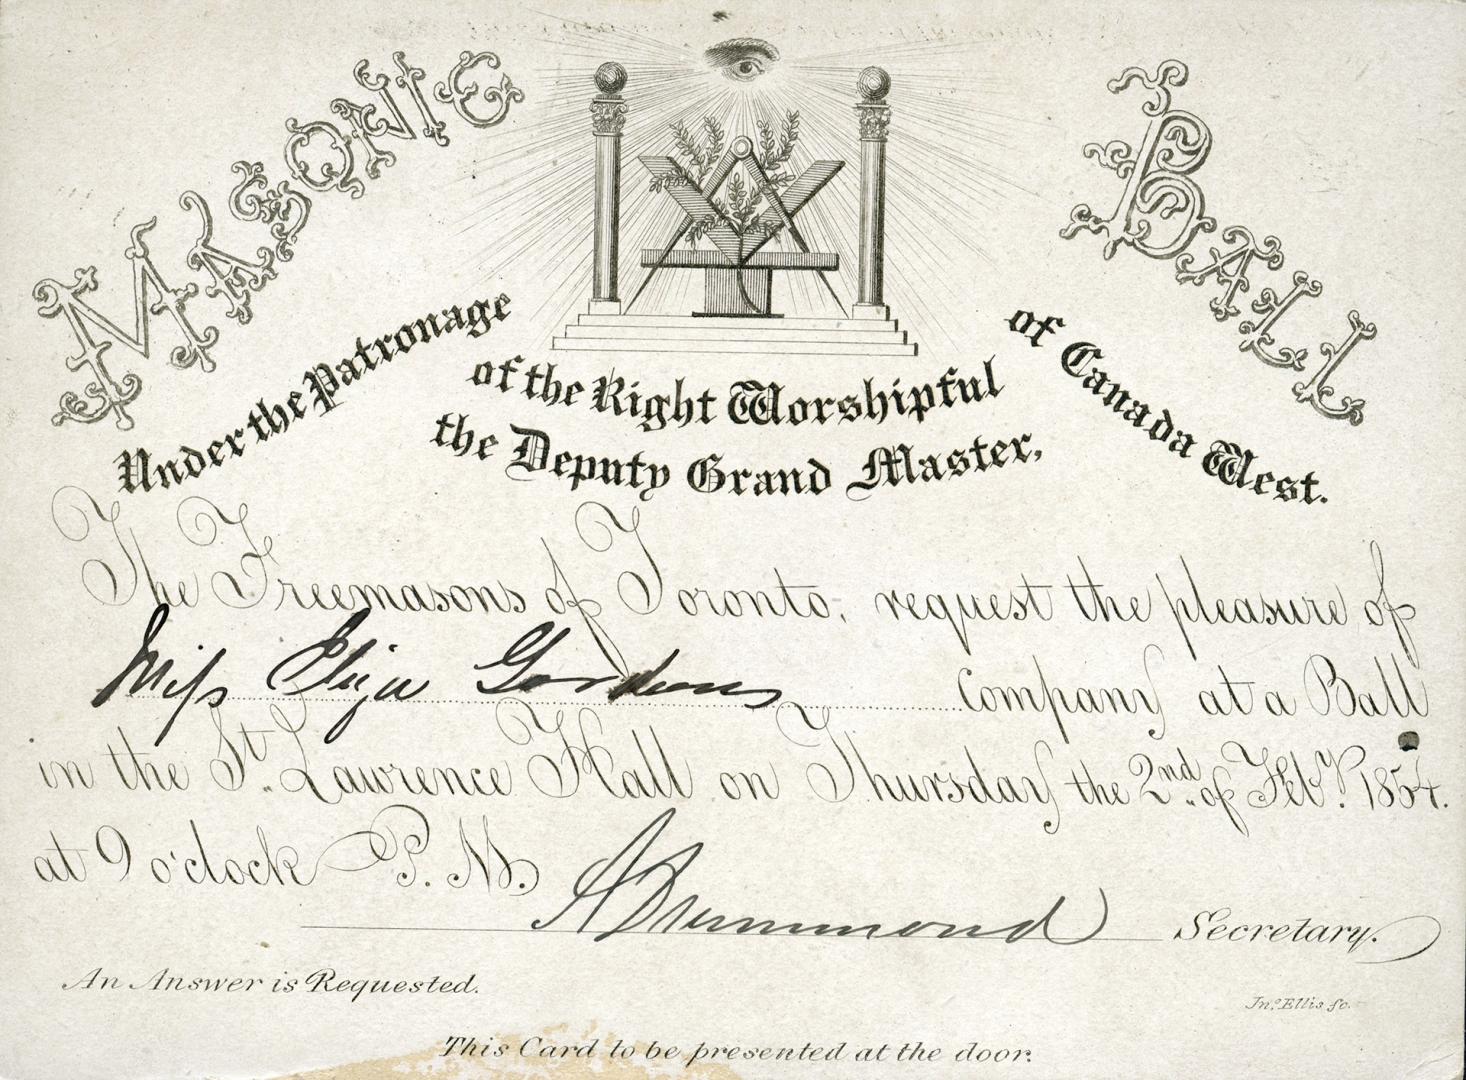 MASONIC BALL
Under the Patronage of the Right Worshipful of Canada West.
the Deputy Grand Master,
The Freemasons of Toronto, request the pleasure of
Miss Eliza Gordons company at a Ball
in the St. Lawrence Hall on Thursday the 2nd. of Feby. 1854.
at 9 o'clock P. M.
A Drummond Secretary.
An Answer is Requested.
Jno. Ellis, sc.
This Card to be presented at the door.